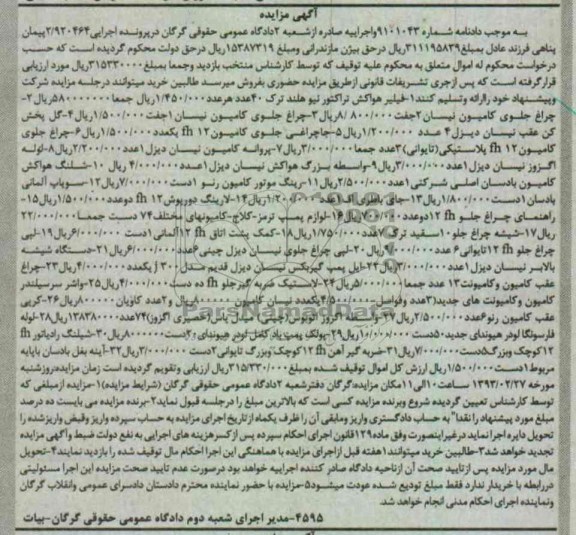 آگهی مزایده
به موجب دادنامه شماره ۹۱۰۱۰۴۳ واجراییه صادره ازشعبه ۲دادگاه عمومی حقوقی گرگان درپرونده اجرایی۲/۹۲۰۴۶۴پیمان
پناهی فرزند عادل بمبلغ۳۱۱۱۹۵۸۳۹ریال درحق بیژن مازندرانی ومبلغ ۱۵۳۸۷۳۱۹ریال درحق دولت محکوم گردیده است که حسب
درخواست محکوم له اموال متعلق به محکوم علیه توقیف که توسط کارشناس منتخب بازدید وجمعا بمبلغ۳۱۵۳۳۰۰۰۰ریال مورد ارزیابی
قرارگرفته است که پس ازجری تشریفات قانونی ازطریق مزایده حضوری بفروش میرسد طالبین خرید میتوانند درجلسه مزایده شرکت
وپیشنهاد خود راارائه وتسلیم کنند۱-فیلتر هواکش تراکتور نیو هلند ترک ۴۰عدد هرعدد۱/۴۵۰/۰۰۰ریال جمعا۵۸۰۰۰۰۰۰ریال ۲-
چراغ جلوی کامیون نیسان ۲جفت۸/۸۰۰/۰۰۰ریال۳-چراغ جلوی کامیون نیسان ۱جفت۱/۵۰۰/۰۰۰ریال۴-گل پخش
کن عقب نیسان دیزل۴ عدد ۱/۲۰۰/۰۰۰ریال۵-جاچراغی جلوی کامیون fh ۱۲ یکعدد۱/۵۰۰/۰۰۰ریال۶-چراغ جلوی
کامیون fh ۱۲ پلاستیکی(تایوانی)۳عدد جمعا۳/۰۰۰/۰۰۰ریال۷-پروانه کامیون نیسان دیزل۱عدد۲/۲۰۰/۰۰۰ریال۸-لوله
اگزوز نیسان دیزل۱عدد۳/۰۰۰/۰۰۰ریال۹-واسطه بزرگ هواکش نیسان دیزل۱عدد۴/۰۰۰/۰۰۰ ریال ۱۰-شلنگ هواکش
کامیون بادسان اصلی شرکتی۱عدد۲/۵۰۰/۰۰۰ریال۱۱-رینگ موتور کامیون رنو ۱دست۷/۰۰۰/۰۰۰ریال۱۲-سوپاپ آلمانی
بادسان ۱دست۱/۸۰۰/۰۰۰ریال۱۳-جای باطری اف۱عدد۱/۲۰۰/۰۰۰ریال۱۴-لارینگ دورپوش۱۲ fh دوعدد۱/۵۰۰/۰۰۰ریال۱۵-
راهنمای چراغ جلو fh ۱۲دوعدد۷۰۰/۰۰۰ریال۱۶-لوازم پمپ ترمز-کلاچ-کامیونهای مختلف۷۴ دست جمعا۲۲/۰۰۰/۰۰۰
ریال۱۷-شیشه چراغ جلو ۱۰سفید ترک ۷عدد۱/۷۵۰/۰۰۰ریال۱۸-کمک پشت اتاق fh ۱۲آلمانی ۱دست ۶/۰۰۰/۰۰۰ریال۱۹-لبی
چراغ جلو fh ۱۲تایوانی۶ عدد۹/۰۰۰/۰۰۰ریال۲۰-لبی چراغ جلوی نیسان دیزل چینی۶عدد۶/۰۰۰/۰۰۰ریال۲۱-دستگاه شیشه
بالابر نیسان دیزل۱عدد۲/۰۰۰/۰۰۰ریال۲۲-اپل پمپ گیربکس نیسان دیزل قدیم مدل ۳۰۰ ژ یکعدد۴/۰۰۰/۰۰۰ریال۲۳-چراغ
عقب کامیون وکامیونت۱۳ عدد جمعا۵/۰۰۰/۰۰۰ریال۲۴-لاستیک ضربه گیرجلو fh ده دست۴/۰۰۰/۰۰۰ریال۲۵-واشر سرسیلندر
کامیون وکامیونت های جدید(۳عدد وفواصل ۴/۵۰۰/۰۰۰یکعدد نیان کامیون ریال و۲عدد کاویان ۸۰۰/۰۰۰ریال۲۶-کرپی
عقب کامیون رنو۶عدد۲/۵۰۰/۰۰۰ریال اتوبوس(چینی)
فارسونگا لودر هیوندای جدید۵۰ دست۱۰/۰۰۰/۰۰۰ریال۲۹-پولک پمپ باد کامل لودر هیوندای ۲۰دست۸۰۰۰۰۰۰ریال۳۰-شیلنگ رادیاتور fh
۱۲کوچک وبزرگ۵دست۷/۰۰۰/۰۰۰ریال۳۱-ضربه گیر آهن fh ۱۲کوچک وبزرگ تایوانی۲دست ۲/۰۰۰/۰۰۰ریال۳۲-آینه بغل بادسان باپایه
مربوط۱دست۱/۵۰۰/۰۰۰ریال ارزش کل اموال توقیف شده بمبلغ۳۱۵/۳۳۰/۰۰۰ریال ارزیابی وتقویم گردیده است زمان مزایده:روزشنبه
مورخه ۱۳۹۳/۰۲/۲۷ ساعت۱۰الی۱۱ مکان مزایده:گرگان دفترشعبه ۲دادگاه عمومی حقوقی گرگان (شرایط مزایده)۱-مزایده ازمبلغی که
توسط کارشناس تعیین گردیده شروع وبرنده مزایده کسی است که بالاترین مبلغ را درجلسه قبول نماید۲-برنده مزایده می بایست ده درصد
مبلغ مورد پیشنهاد را نقدا" به حساب دادگستری واریز ومابقی آن را ظرف یکماه ازتاریخ اجرای مزایده به حساب سپرده واریز وقبض واریزشده را
تحویل دایره اجرا نماید درغیراینصورت وفق ماده۱۲۹قانون اجرای احکام سپرده پس ازکسرهزینه های اجرایی به نفع دولت ضبط وآگهی مزایده
تجدید خواهد شد۳-طالبین خرید میتوانند۱هفته قبل ازاجرای مزایده با هماهنگی این اجرا احکام مال توقیف شده را بازدید نمایند۴-تحویل
مال مورد مزایده پس ازتایید صحت آن ازناحیه دادگاه صادر کننده اجراییه خواهد بود درصورت عدم تایید صحت مزایده این اجرا مسئولیتی
دررابطه با خریدار ندارد فقط مبلغ تودیع شده عودت میشود۵-مزایده با حضور نماینده محترم دادستان دادسرای عمومی وانقلاب گرگان
ونماینده اجرای احکام مدنی انجام خواهد شد.
۴۵۹۵-مدیر اجرای شعبه دوم دادگاه عمومی حقوقی گرگان-بیات